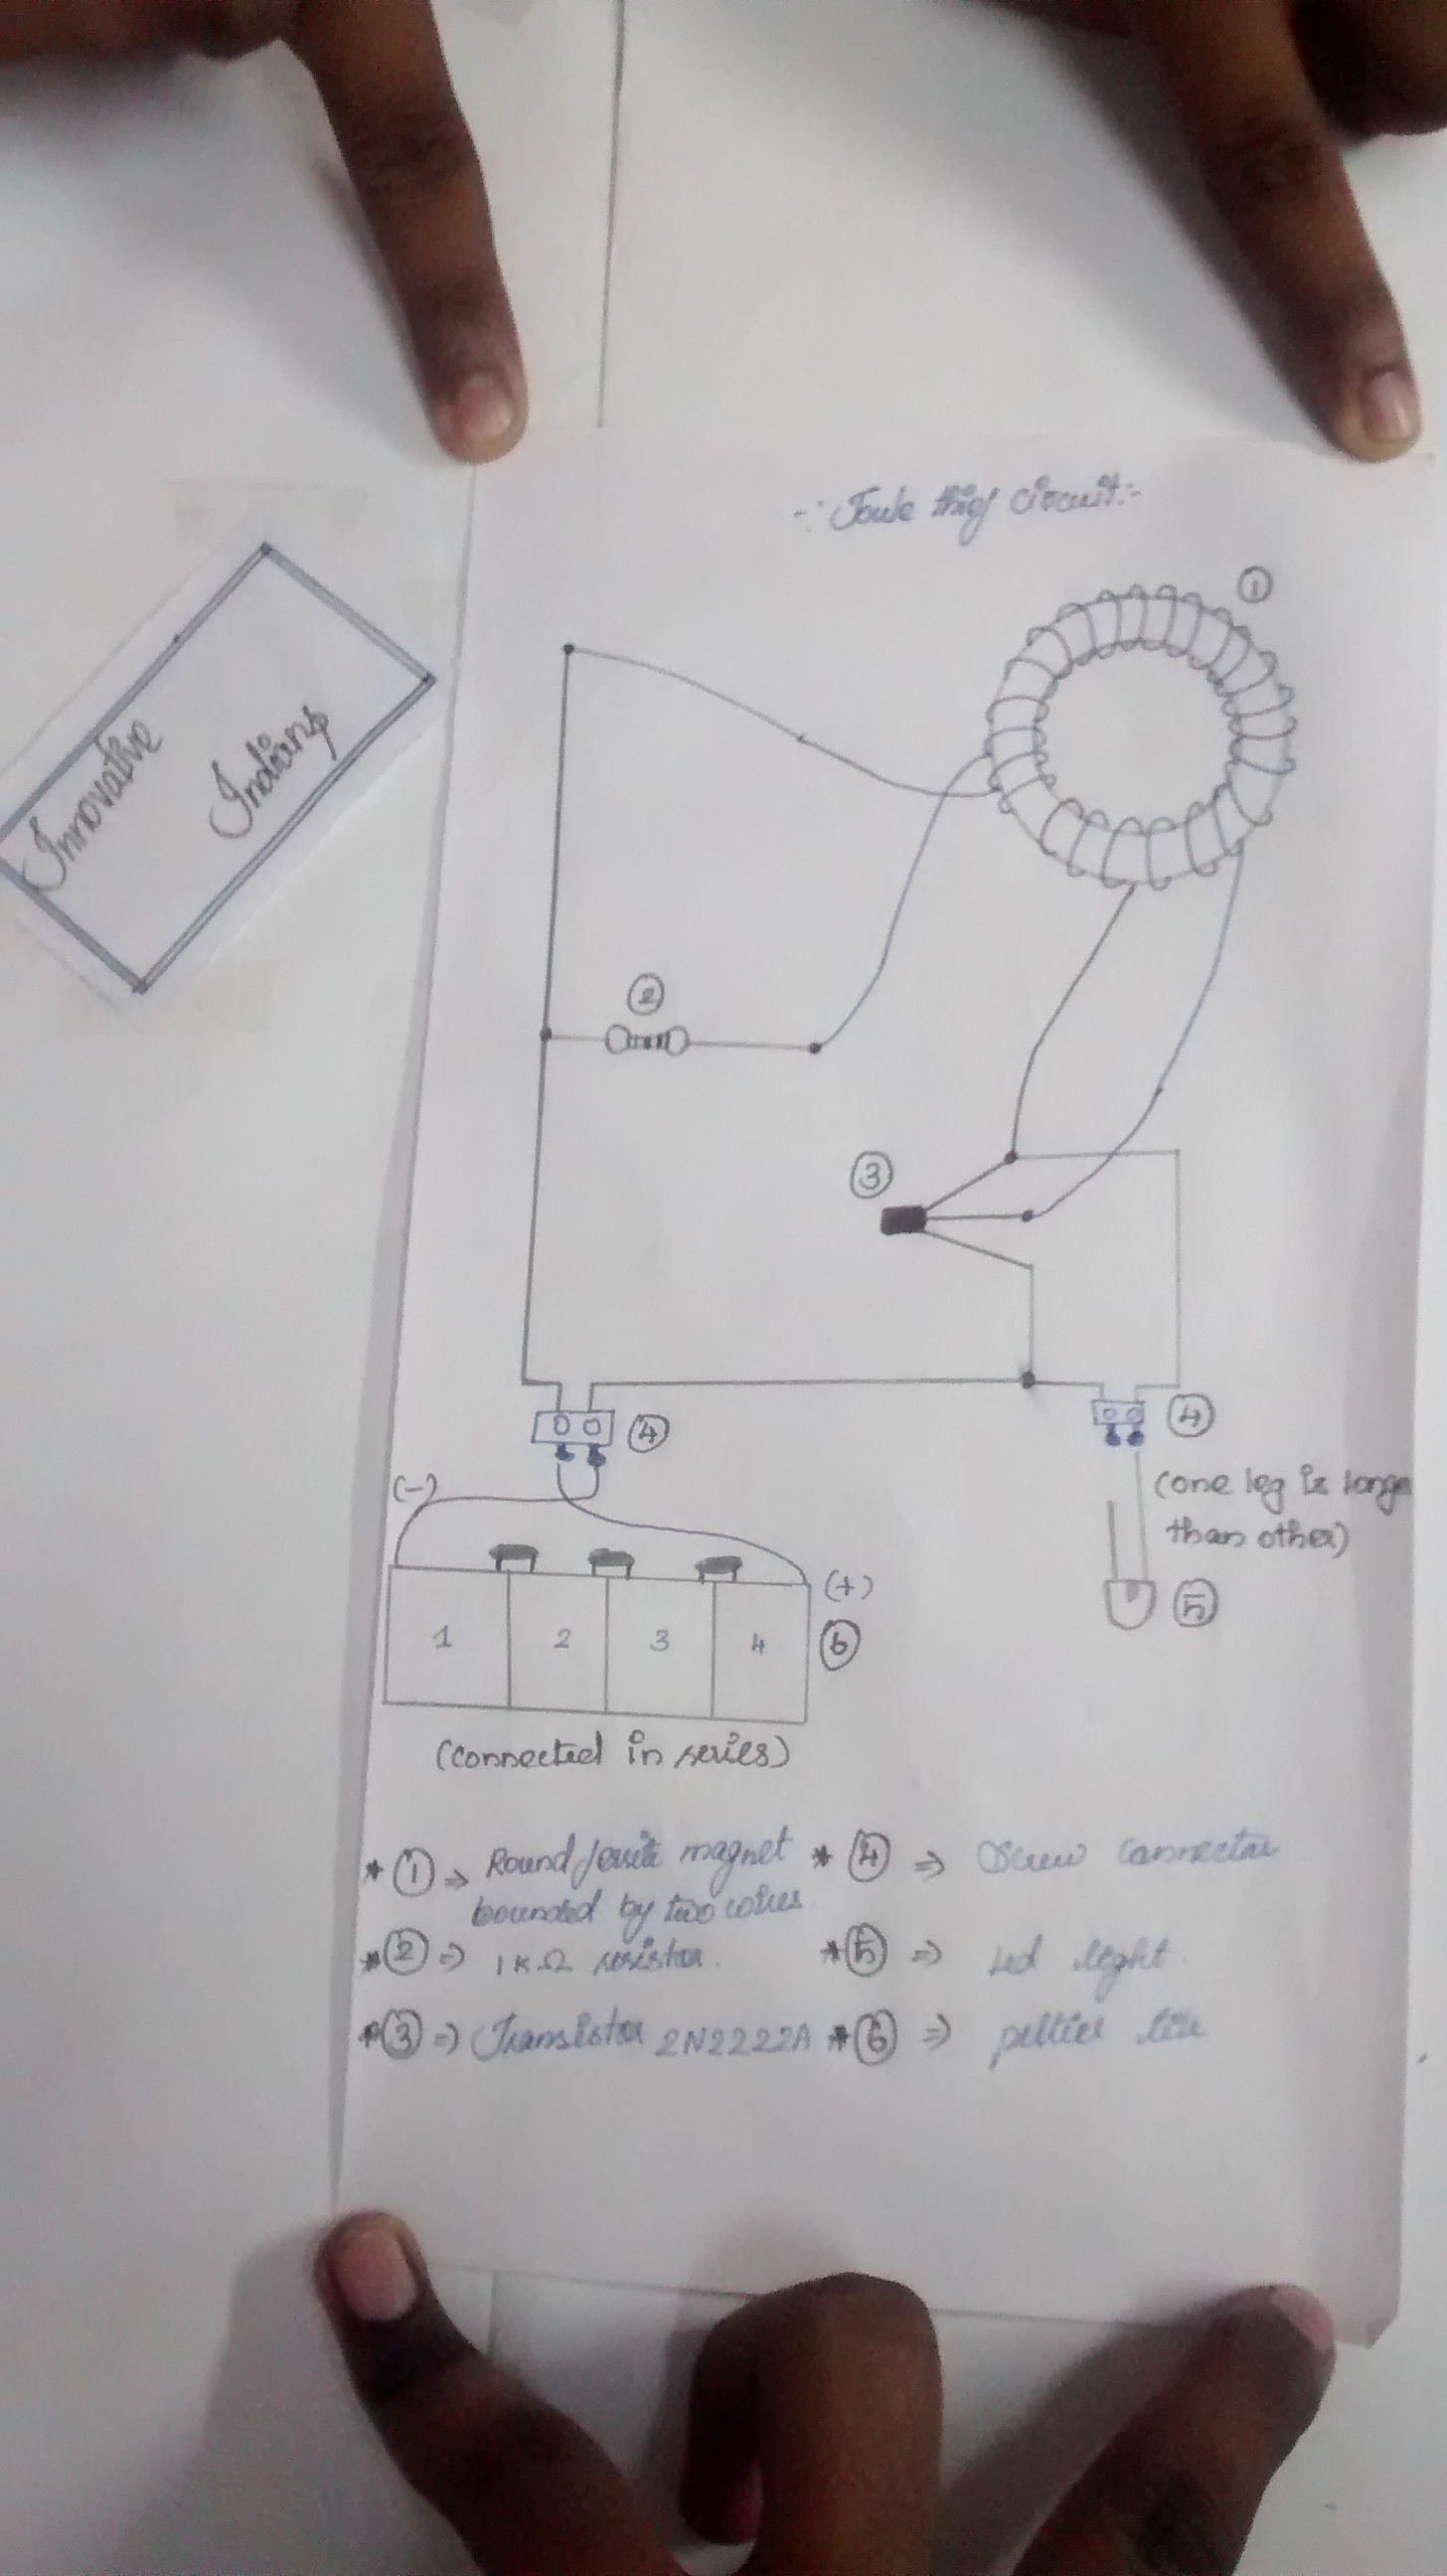 -: Joule thief circuit:-
Innovative
Indians
1
2
3
4
4
(one leg is longe
than other)
5
(-)
(+)
6
1 2 3 4
(connected in series)
* 1 ⇒ Round ferrite magnet
bounded by two
* 2 ⇒ 1KΩ resistor.
* 3 ⇒ Transistor 2N2222A
* 4 ⇒ Screw connector
* 5 ⇒ Led light.
* 6 ⇒ peltier